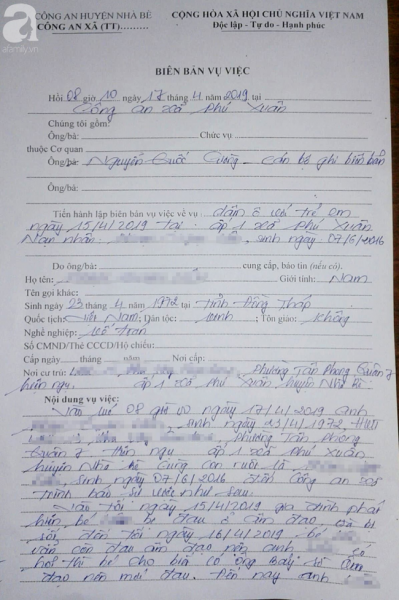 afamily.vn
CÔNG AN HUYỆN NHÀ BÈ
CÔNG AN XÃ (TT)..........
CỘNG HÒA XÃ HỘI CHỦ NGHĨA VIỆT NAM
Độc lập - Tự do - Hạnh phúc
BIÊN BẢN VỤ VIỆC
Hồi 08 giờ 10 ngày 17 tháng 4 năm 2019 tại
Công an xã Phú Xuân
Chúng tôi gồm:
Ông/bà: Chức vụ
thuộc Cơ quan
Ông/bà: Nguyễn Quốc Cường - cán bộ ghi biên bản
Ông/bà:
Tiến hành lập biên bản vụ việc về vụ dâm ô với trẻ em
ngày 15/4/2019 tại ấp 1 xã Phú Xuân
Nạn nhân: sinh ngày 07/6/2016
Do ông/bà: cung cấp, báo tin (nếu có).
Họ tên: Giới tính: Nam
Tên gọi khác:
Sinh ngày 23 tháng 4 năm 1972 tại Tỉnh Đồng Tháp
Quốc tịch: Việt Nam; Dân tộc: kinh; Tôn giáo: không
Nghề nghiệp:
Số CMND/Thẻ CCCD/Hộ chiếu:
Cấp ngày tháng năm Nơi cấp:
Nơi cư trú: phường Tân Phong Quận 7
hiện nay: ấp 1 xã Phú Xuân huyện Nhà Bè.
Nội dung vụ việc:
Vào lúc 08 giờ 00 ngày 17/4/2019 anh
, sinh ngày 23/4/1972, HKTT
phường Tân Phong
Quận 7 hiện nay ấp 1 xã Phú Xuân
huyện Nhà Bè cùng con ruột là
, sinh ngày 07/6/2016 đến Công an xã
trình báo sự việc như sau:
Vào tối ngày 15/4/2019 gia đình phát
hiện bé bị đau ở âm đạo
đến tối ngày 16/4/2019 bé
vẫn còn đau âm đạo nên anh có
hỏi thì bé cho biết có ông Bảy sờ âm
đạo nên mới đau. Đến nay anh